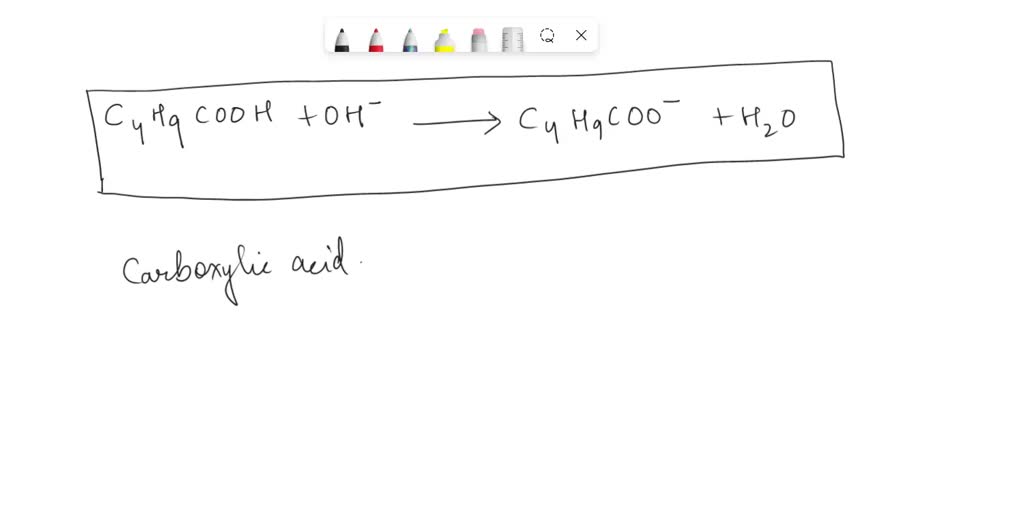 C₄H₉COOH + OH⁻ ⟶ C₄H₉COO⁻ + H₂O
Carboxylic acid.